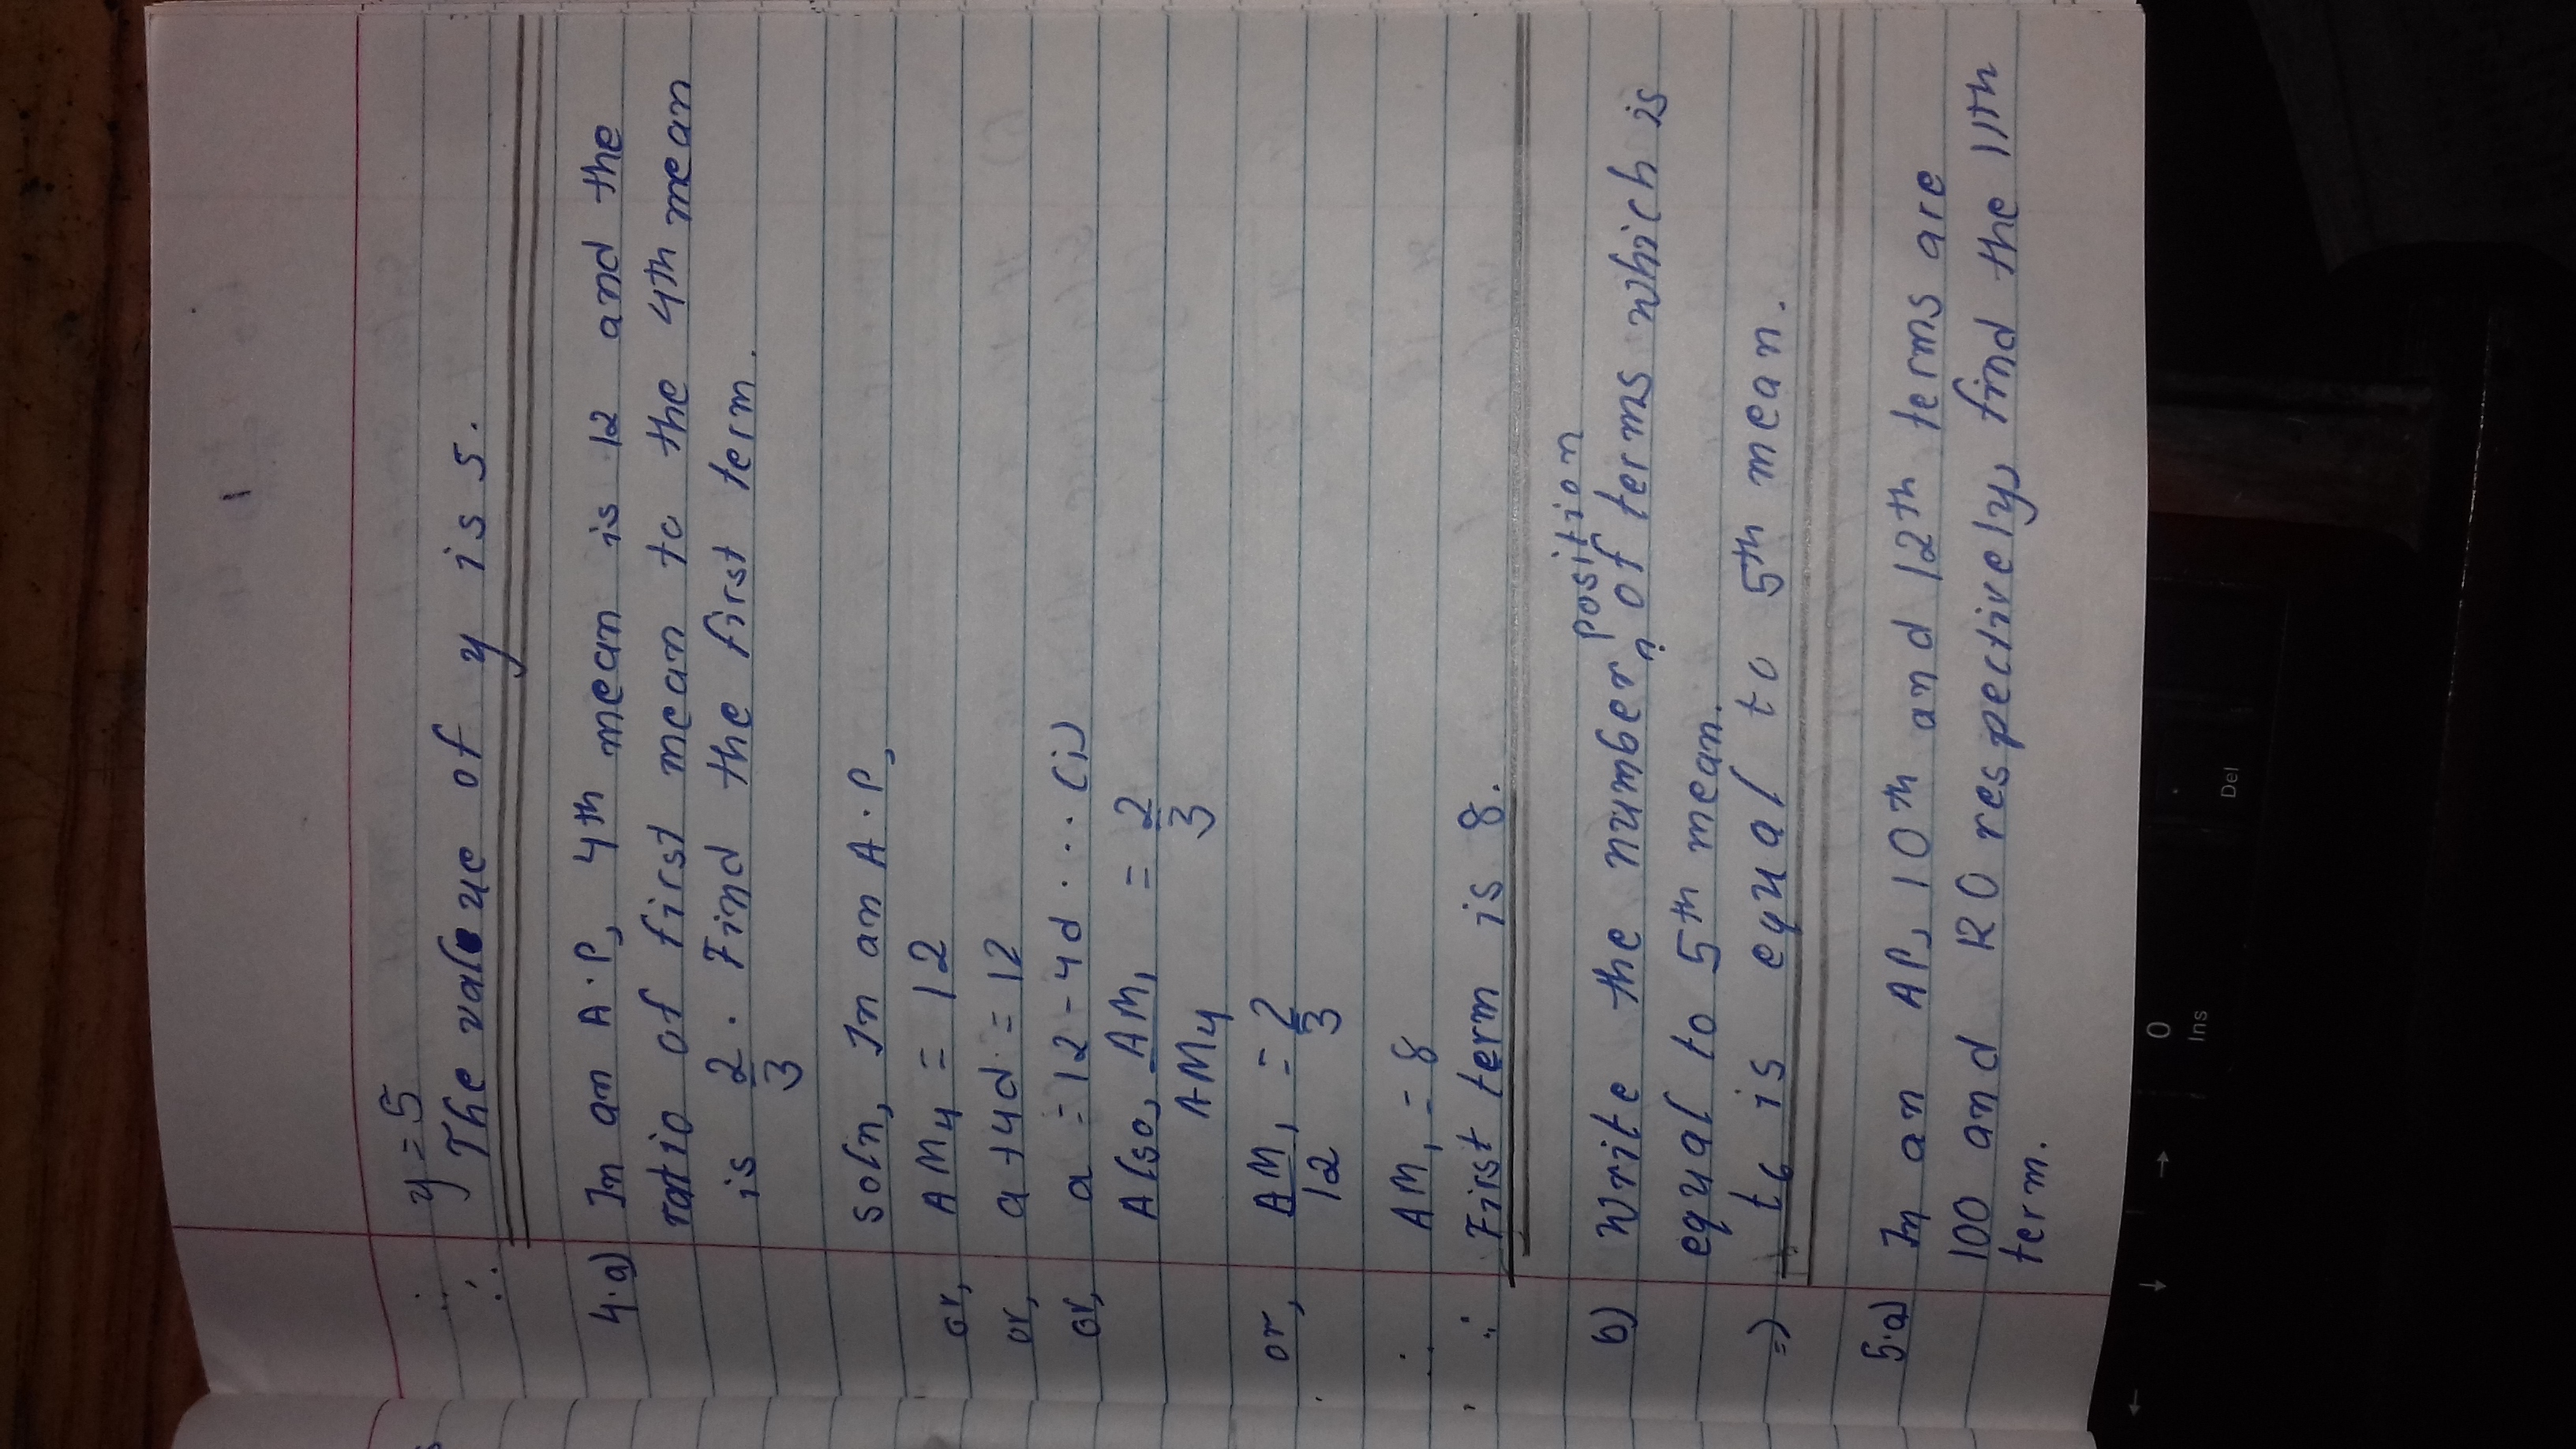 ∴ y = 5
∴ The value of y is 5.
4.a) In an A.P, 4th mean is 12 and the
ratio of first mean to the 4th mean
is 2/3. Find the first term.
Soln, In an A.P,
or, AM₄ = 12
or, a + 4d = 12
or, a = 12 - 4d ... (i)
Also, AM₁/AM₄ = 2/3
or, AM₁/12 = 2/3
∴ AM₁ = 8
∴ First term is 8.
position
b) Write the number of terms which is
equal to 5th mean.
=> t₆ is equal to 5th mean.
5.a) In an AP, 10th and 12th terms are
100 and 120 respectively, find the 11th
term.
0
Ins
Del